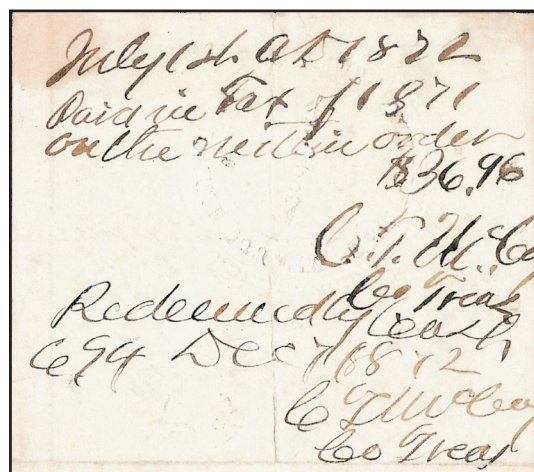 July 1st. A.D. 1872
Paid in Tax of 1871
on the within order
$36.96
C. T. McCoy
Co Treas
Redeemed by Cash
Dec 1872
C T McCoy
Co Treas